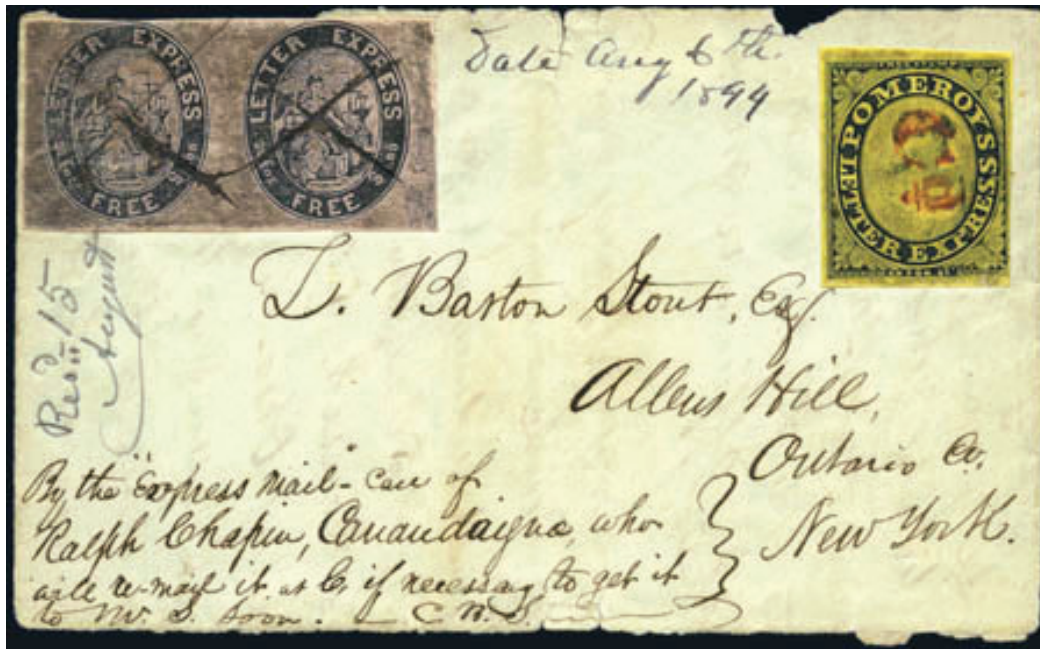 LETTER EXPRESS
FREE
LETTER EXPRESS
FREE
Date Aug 6th.
1844
POMEROY'S
LETTER EXPRESS
L. Barton Stout, Esq.
Allens Hill,
Ontario Co.
New York.
Recd 15
August
By the "Express Mail" - care of
Ralph Chapin, Canandaigua, who
will re-mail it at C. if necessary to get it
to Mr. S. soon. - C. B. S.